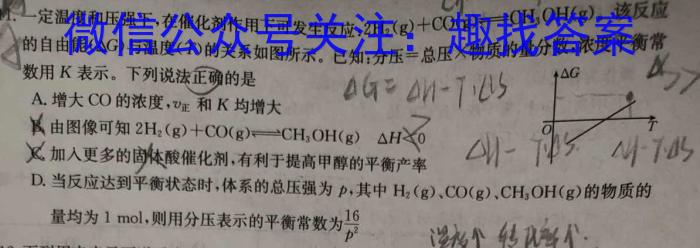 11.一定温度和压强下,在催化剂作用下可发生反应:2H₂(g)+CO(g)⇌CH₃OH(g) 该反应
微信公众号关注:趣找答案
的自由能(ΔG)与温度(T)的关系如图所示。已知:分压=总压×物质的量分数;浓度平衡常
数用 K 表示。下列说法正确的是
ΔG = ΔH-T·ΔS
A. 增大 CO 的浓度,v正 和 K 均增大
B. 由图像可知 2H₂(g)+CO(g)⇌CH₃OH(g) ΔH<0
C. 加入更多的固体酸催化剂,有利于提高甲醇的平衡产率
D. 当反应达到平衡状态时,体系的总压强为 p,其中 H₂(g)、CO(g)、CH₃OH(g)的物质的
量均为 1 mol,则用分压表示的平衡常数为16/p²
ΔG
O
T
ΔH- T·ΔS
ΔH-T·ΔS